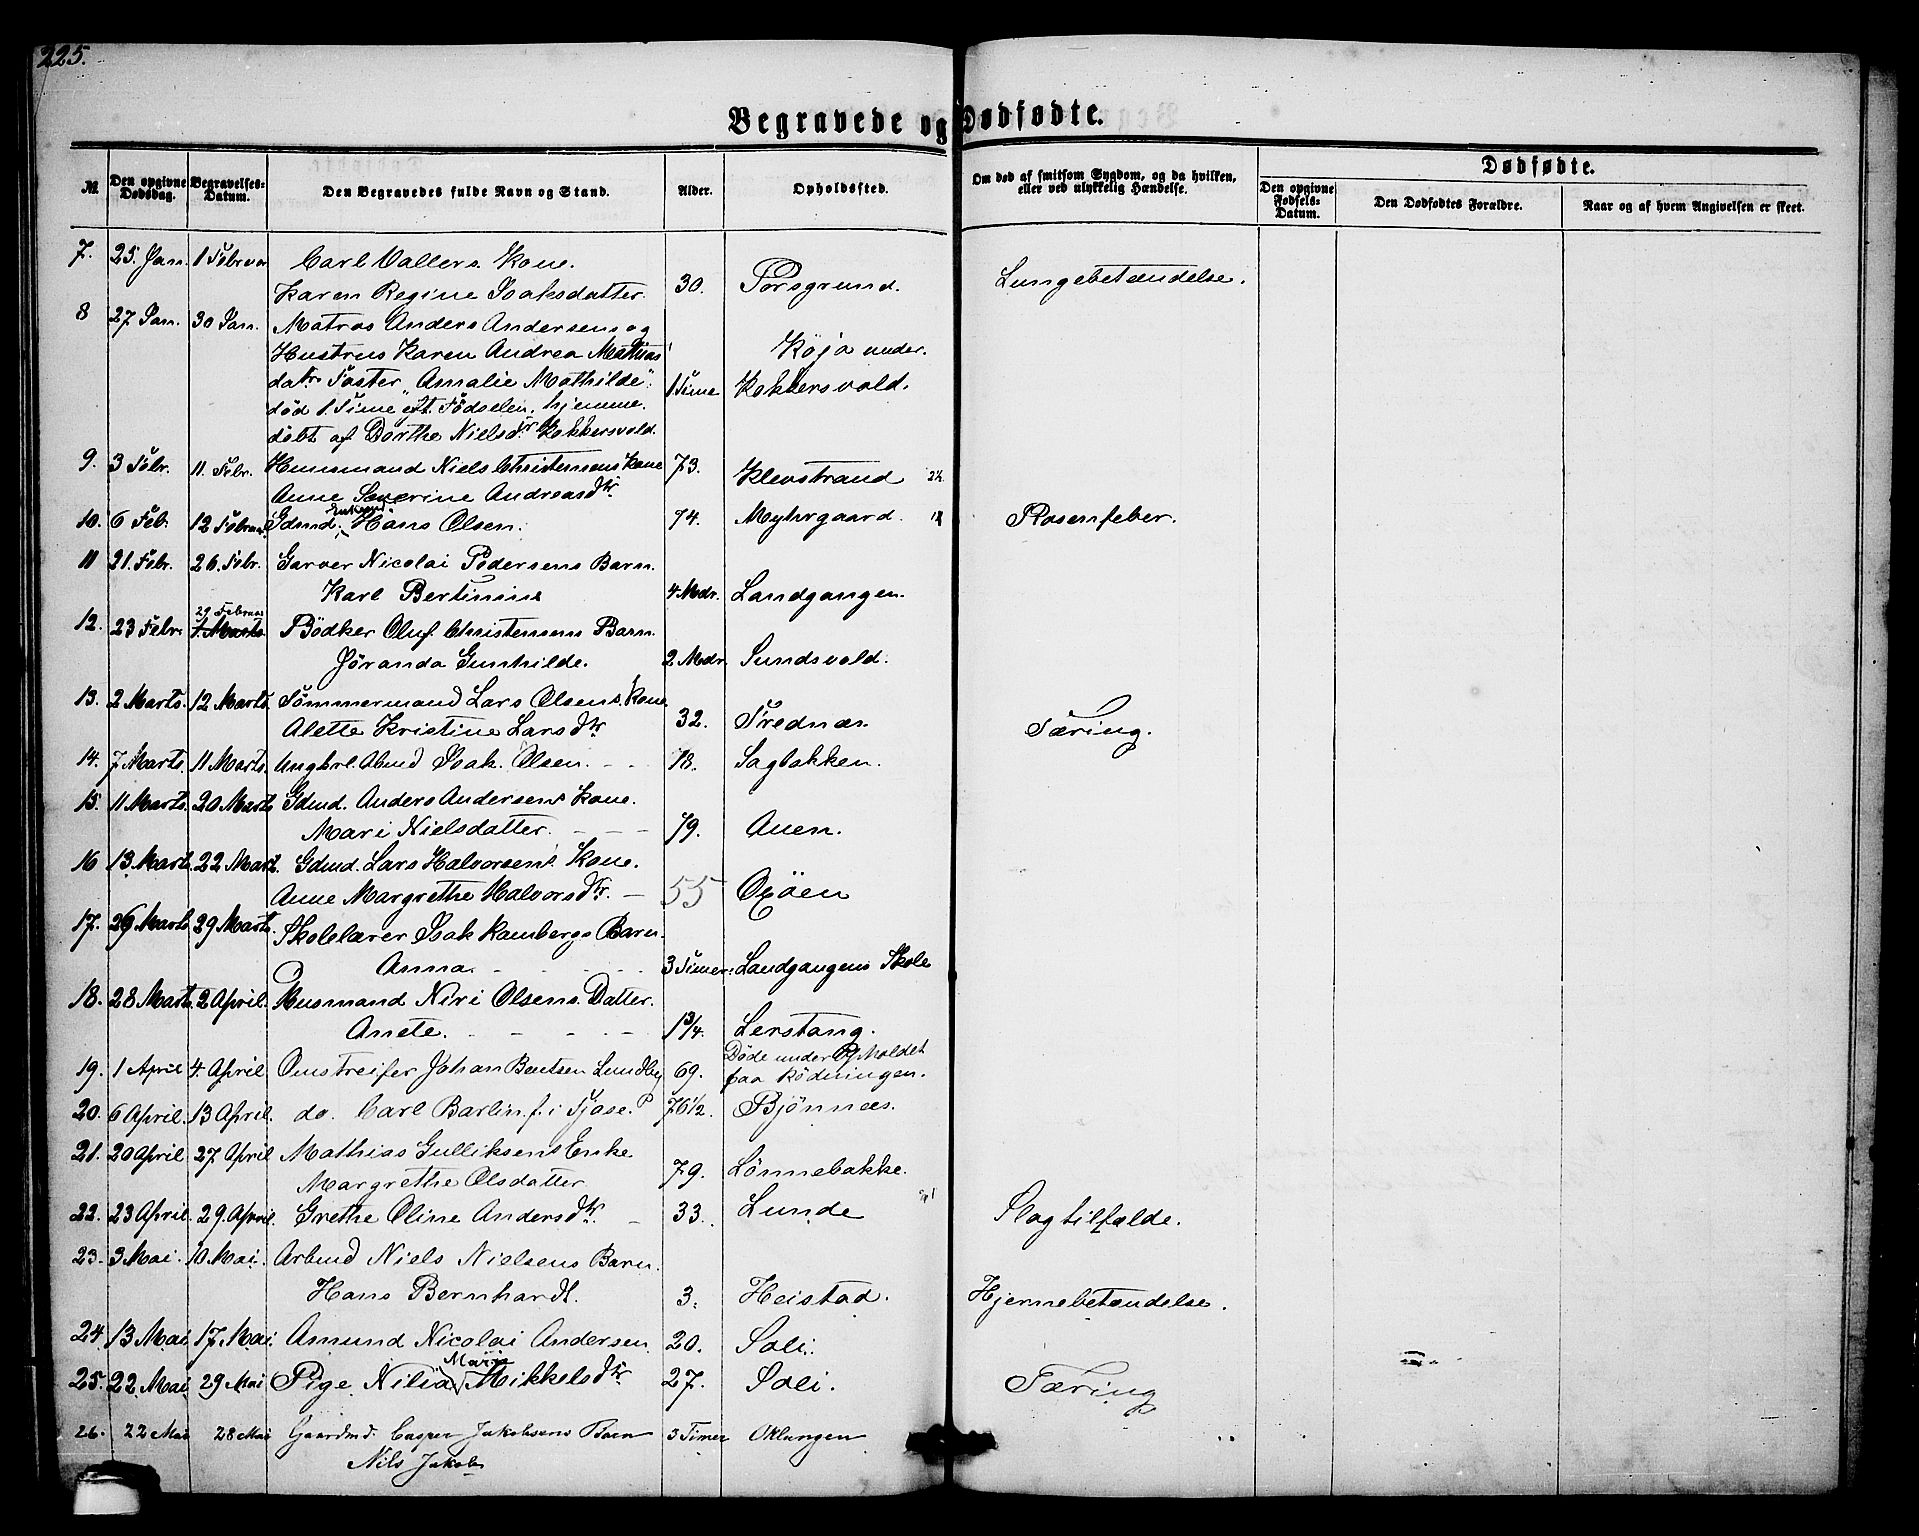 225.
Begravede og Dødfødte.
№
Den opgivne Dødsdag.
Begravelses-Datum.
Den Begravedes fulde Navn og Stand.
Alder.
Opholdssted.
Om død af smitsom Sygdom, og da hvilken,
eller ved ulykkelig Hændelse.
Dødfødte.
Den opgivne Fødsels-Datum.
Den Dødfødtes Forældre.
Naar og af hvem Angivelsen er skeet.
7. 25. Jan. 1 Februar Carl Vallers Kone.
Karen Regine Isaksdatter. 30. Porsgrund. Lungebetændelse.
8 27 Jan. 30 Jan. Matros Anders Andersens og
Hustrus Karen Andrea Mathias
datrs Foster "Amalie Mathilde" Köja under.
død 1. Time eft. Fødselen, hjemme 1 Time Kokkersvold.
döbt af Dorthe Nielsdtr Kokkersvold.
9. 3 Febr. 11. Febr. Huusmand Niels Christensens Kone 73. Klevstrand
Anne Severine Andreasdtr.
10. 6 Feb. 12 Februar Gdmd. Enkemd. Hans Olsen. 74. Myhrgaard. Rosenfeber.
11 21. Febr. 26. Febr. Garver Nicolai Pedersens Barn.
Karl Bertinius 4 Mdr. Landgangen.
29 Februar
12. 23 Febr. 1. Marts Bödker Oluf Christensens Barn.
Jøranda Gunhilde. 2 Mdr. Sundsvold.
13. 2 Marts. 12 Marts. Tömmermand Lars Olsens Kone
Alette Kristine Larsdtr 32. Trednæs. Tæring.
14. 7 Marts. 11 Marts. Ungkrl. Abmd Isak Olsen. 78. Sagbakken.
15. 11 Marts. 20 Marts Gdmd. Anders Andersens Kone.
Mari Nielsdatter. 79. Auen.
16 13. Marts. 22 Mart. Gdmd. Lars Halvorsens Kone.
Anne Margrethe Halvorsdtr. 55 Oxöen
17. 26 Marts 29 Marts. Skolelærer Isak Rambergs Barn.
Anna. 3 Timer. Landgangens Skole
18. 28 Marts 2 April. Husmand Niri Olsens Datter.
Anete. 1 3/4. Lerstang.
19. 1 April 4. April Omstreifer Johan Bentsen Lundby 69. Døde under Opholdet
paa Rödningen.
20. 6 April. 13 April. do. Carl Barlin. f. i Tjøse. 76 1/2. Bjönnæs.
21. 20 April 27 April Mathias Gulliksens Enke
Margrethe Olsdatter 79. Lönnebakke.
22. 23 April. 29. April. Grethe Oline Andersdtr. 33. Lunde Slagtilfælde.
23. 3 Mai. 10 Mai. Arbmd Niels Nielsens Barn.
Hans Bernhardt. 3. Heistad. Hjernebetændelse.
24. 13 Mai 17. Mai. Amund Nicolai Andersen 20. Soli.
25. 22. Mai 29 Mai Pige Nilia Marie Mikkelsdtr 27. Soli. Tæring
26. 22 Mai 28 Mai Gaardmd. Casper Jakobsens Barn 3 Timer Oklungen
Nils Jakob